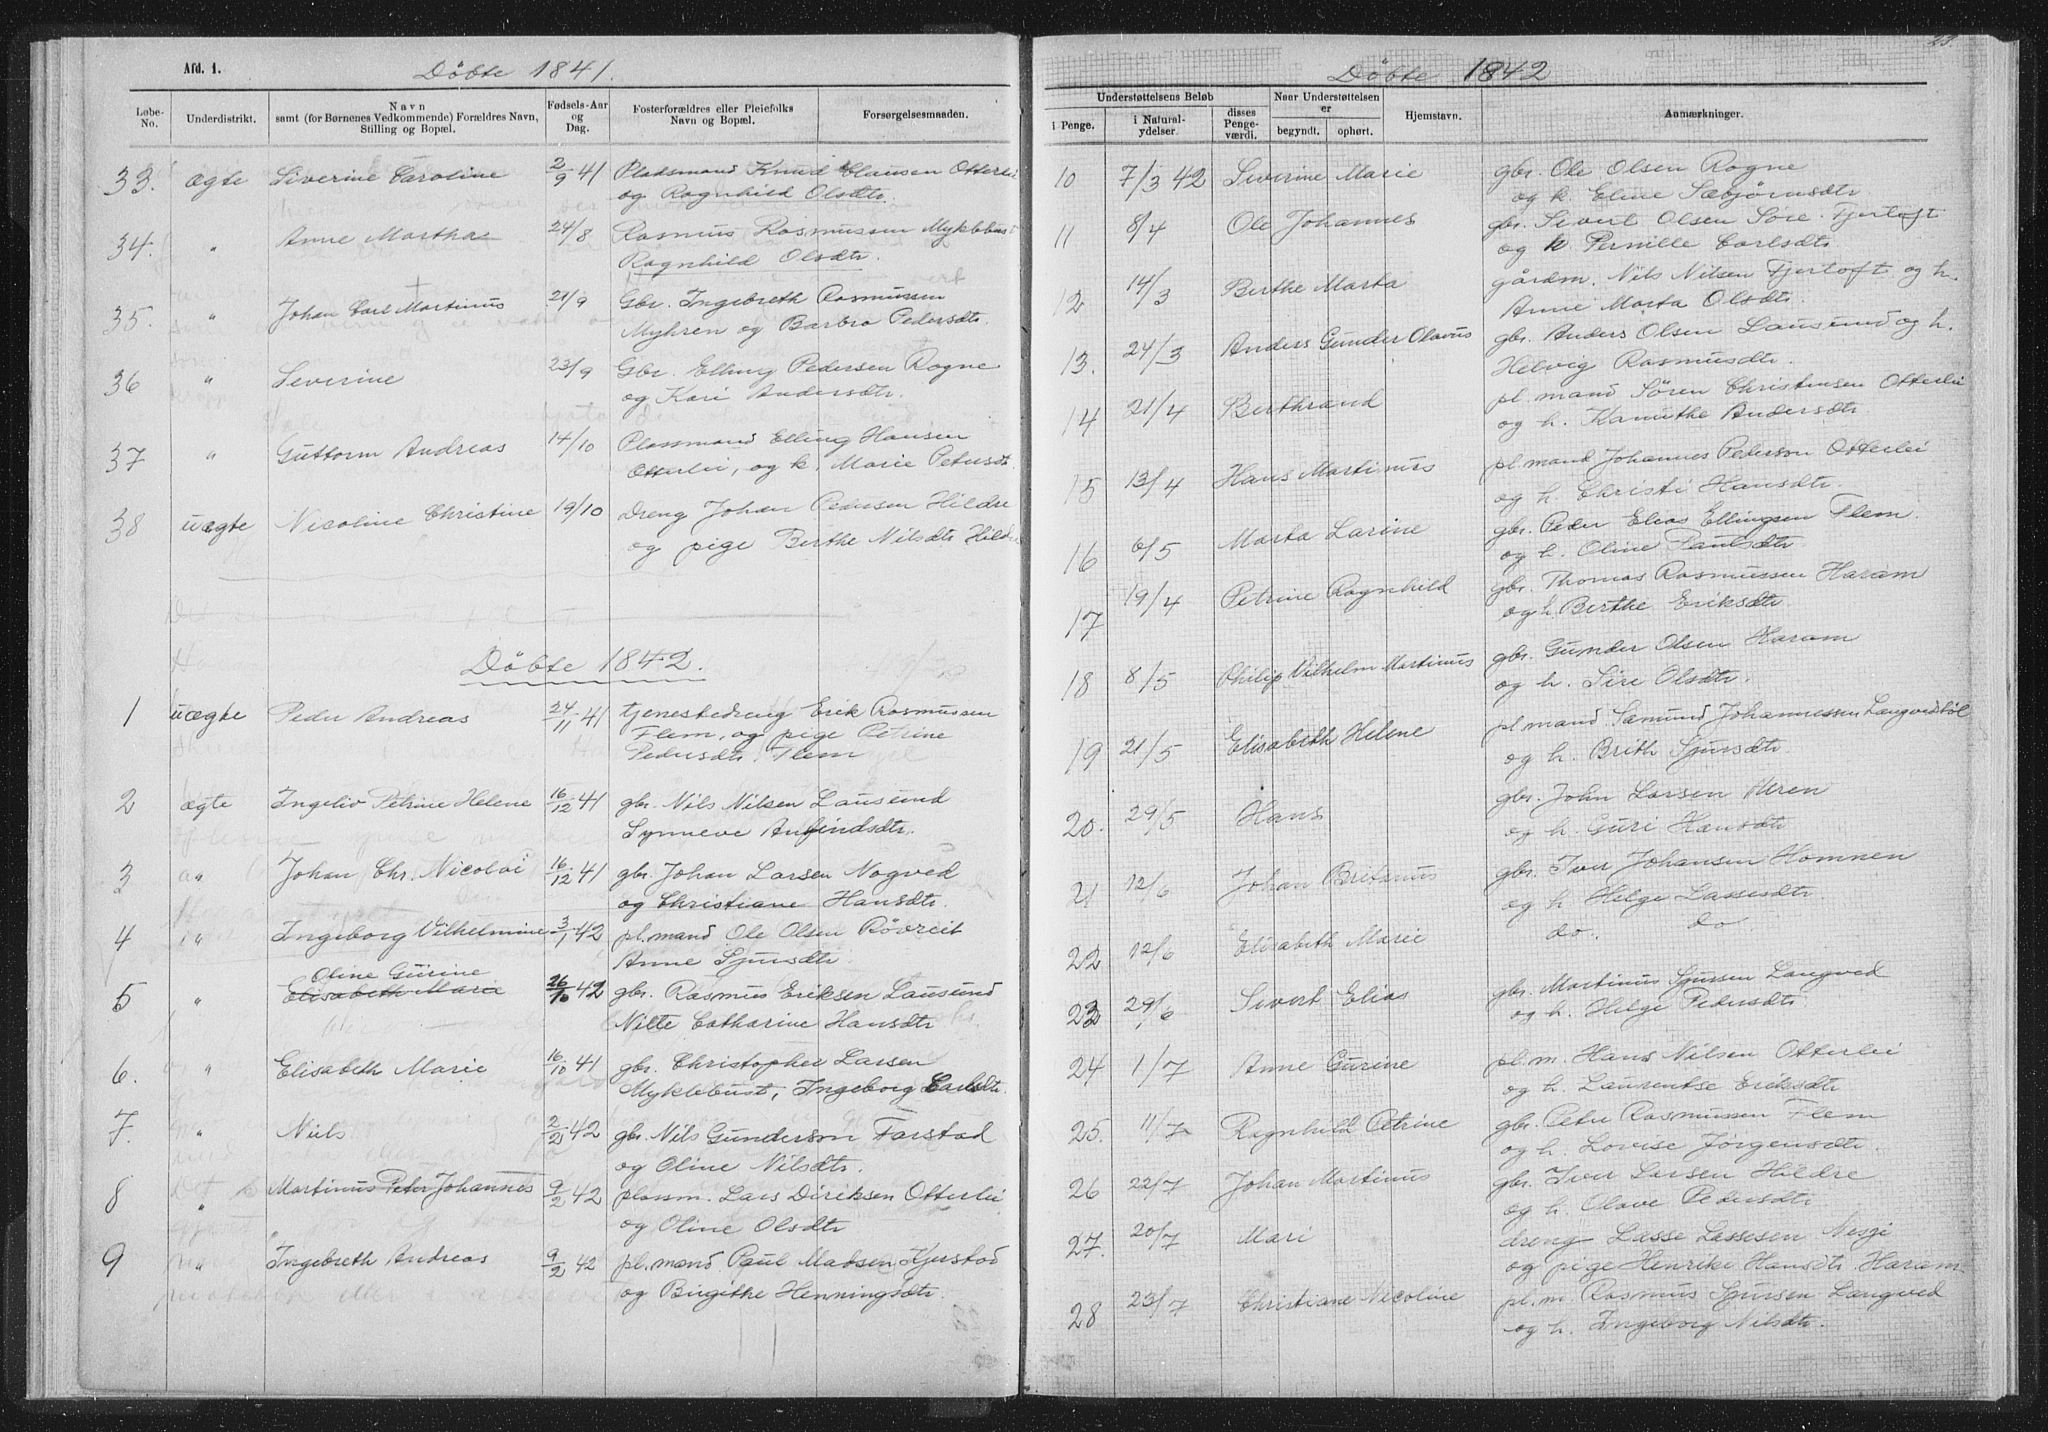 Afd. 1.
Døbte 1841.
Løbe-No.
Underdistrikt.
Navn
samt (for Børnenes Vedkommende) Forældres Navn,
Stilling og Bopæl.
Fødsels-Aar
og
Dag.
Fosterforældres eller Pleiefolks
Navn og Bopæl.
Forsørgelsesmaaden.
33. ægte Siverine Caroline 2/9 41 Pladsmand Knud Clausen Otterlei
og Ragnhild Olsdtr.
34. " Anne Martha 24/8 Rasmus Rasmussen Myklebust
Ragnhild Olsdtr.
35. " Johan Carl Martinus 21/9 Gbr. Ingebreth Rasmussen
Myhren og Barbro Pedersdtr.
36 " Severine 23/9 Gbr. Elling Pedersen Rogne
og Kari Andersdtr.
37 " Guttorm Andreas 14/10 Plassmand Elling Hansen
Otterlei, og k. Marie Petersdtr.
38 uægte Nicoline Christine 19/10 Dreng Johan Pedersen Hildre
og pige Berthe Nilsdtr Hildre
Døbte 1842.
1 uægte Peder Andreas 24/11 41 tjenestedreng Erik Rasmussen
Flem, og pige Petrine
Pedersdtr. Flem
2 ægte Ingeliv Petrine Helene 16/12 41 gbr. Nils Nilsen Lausund
Synneve Anfindsdtr.
3 " Johan Chr. Nicolai 16/12 41 gbr. Johan Larsen Nogved
og Christiane Hansdtr.
4 " Ingeborg Vilhelmine 3/1 42 pl.mand Ole Olsen Røvreit
Anne Sjursdtr.
Oline Gurine
5 " Elisabeth Marie 26/10 42 gbr. Rasmus Eriksen Lausund
Nille Catharine Hansdtr.
6. " Elisabeth Marie 16/10 41 gbr. Christopher Larsen
Myklebust, Ingeborg Carlsdtr.
7. " Niels 2/2 42 gbr. Nils Gunderson Farstad
og Oline Nilsdtr.
8 " Martinus Peter Johannes 9/2 42 plassm. Lars Diriksen Otterlei
og Oline Olsdtr
9 " Ingebreth Andreas 9/2 42 pl.mand Paul Madsen Kjerstad
og Birgithe Henningsdtr.
23.
Døbte 1842
Understøttelsens Beløb
i Penge.
i Natural-
ydelser.
disses
Penge-
værdi.
Naar Understøttelsen
er
begyndt.
ophørt.
Hjemstavn.
Anmærkninger.
10 7/3 42 Severine Marie gbr. Ole Olsen Rogne
og k. Eline Sæbjørnsdtr
11 8/4 Ole Johannes gbr. Sivert Olsen Søre Fjertoft
og k Pernille Carlsdtr
12 14/3 Berthe Marta gårdm. Nils Nilsen Fjertoft og h.
Anne Marta Olsdtr.
13. 24/3 Anders Gunder Olavus gbr. Anders Olsen Lausund og h.
Helvig Rasmusdtr.
14 21/4 Berthrand pl. mand Søren Christensen Otterlei
og h. Kanuthe Andersdtr
15 13/4 Hans Martinus pl. mand Johannes Pederson Otterlei
og h. Christi Hansdtr.
16 6/5 Marta Larine gbr. Peder Elias Ellingsen Flem.
og h. Oline Paulsdtr.
17 19/4 Petrine Ragnhild gbr. Thomas Rasmussen Haram
og h. Berthe Eriksdtr
18 8/5 Philip Vilhelm Martinus gbr. Gunder Olsen Haram
og h. Sire Olsdtr.
19 21/5 Elisabeth Helene pl. mand Samund Johannessen Langvedbøl
og h. Brith Sjursdtr
20. 29/5 Hans gbr. John Larsen Uren
og h. Guri Hansdtr
21 12/6 Johan Britanus gbr. Iver Johansen Homnen
og h. Helge Lassesdtr
22 12/6 Elisabeth Marie do. do
23 29/6 Sivert Elias gbr. Martinus Sjursen Langved
og h. Helge Pedersdtr
24 1/7 Anne Gurine pl. m. Hans Nilsen Otterlei
og h. Laurentse Eriksdtr
25. 11/7 Ragnhild Petrine gbr. Peter Rasmussen Flem
og h. Lovise Jørgensdtr.
26 22/7 Johan Martinus gbr. Iver Larsen Hildre
og h. Olave Pedersdtr
27. 20/7 Mari dreng Lasse Lassesen
og pige Henrike Hansdtr. Haram
28 23/7 Christiane Nicoline pl. m. Rasmus Sjursen Langved
og h. Ingeborg Nilsdtr.